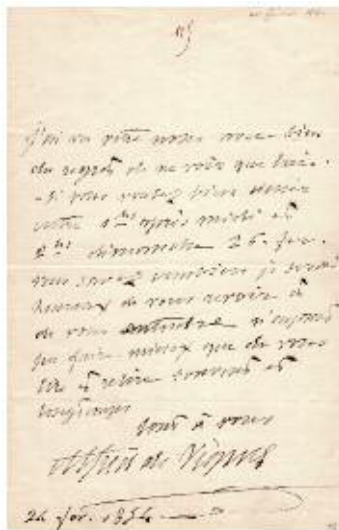 J'ai vu votre nom avec bien
du regret de ne voir que lui.
Si vous voulez bien venir
entre 1 h après midi et
2 h dimanche 26 fév.
vous savez combien je serai
heureux de vous revoir et
de vous entendre
pu faire mieux que de vous
lire et relire souvent et
longtemps
tout à vous
Alfred de Vigny
24 fév. 1854